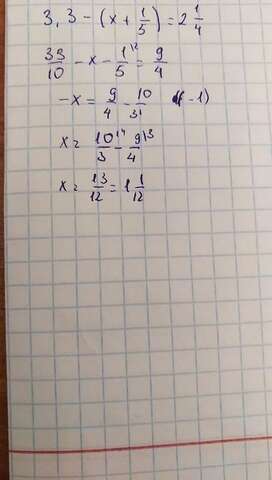 3,3 - (x + 1/5) = 2 1/4
33/10 - x - 1/5 \2 = 9/4
-x = 9/4 - 10/31 (-1)
x = 10/3 \4 - 9/4 \3
x = 13/12 = 1 1/12